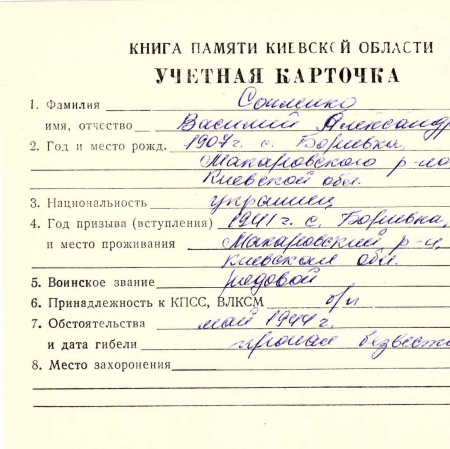 КНИГА ПАМЯТИ КИЕВСКОЙ ОБЛАСТИ
УЧЕТНАЯ КАРТОЧКА
1. Фамилия
имя, отчество Василий Александр
2. Год и место рожд. 1907г. с. Борневка,
Макаровского р-на
Киевской обл.
3. Национальность украинец
4. Год призыва (вступления) 1941г. с. Борневка,
и место проживания Макаровский р-н,
Киевская обл.
5. Воинское звание рядовой
6. Принадлежность к КПСС, ВЛКСМ б/п
7. Обстоятельства май 1944г.
и дата гибели пропал безвестно
8. Место захоронения